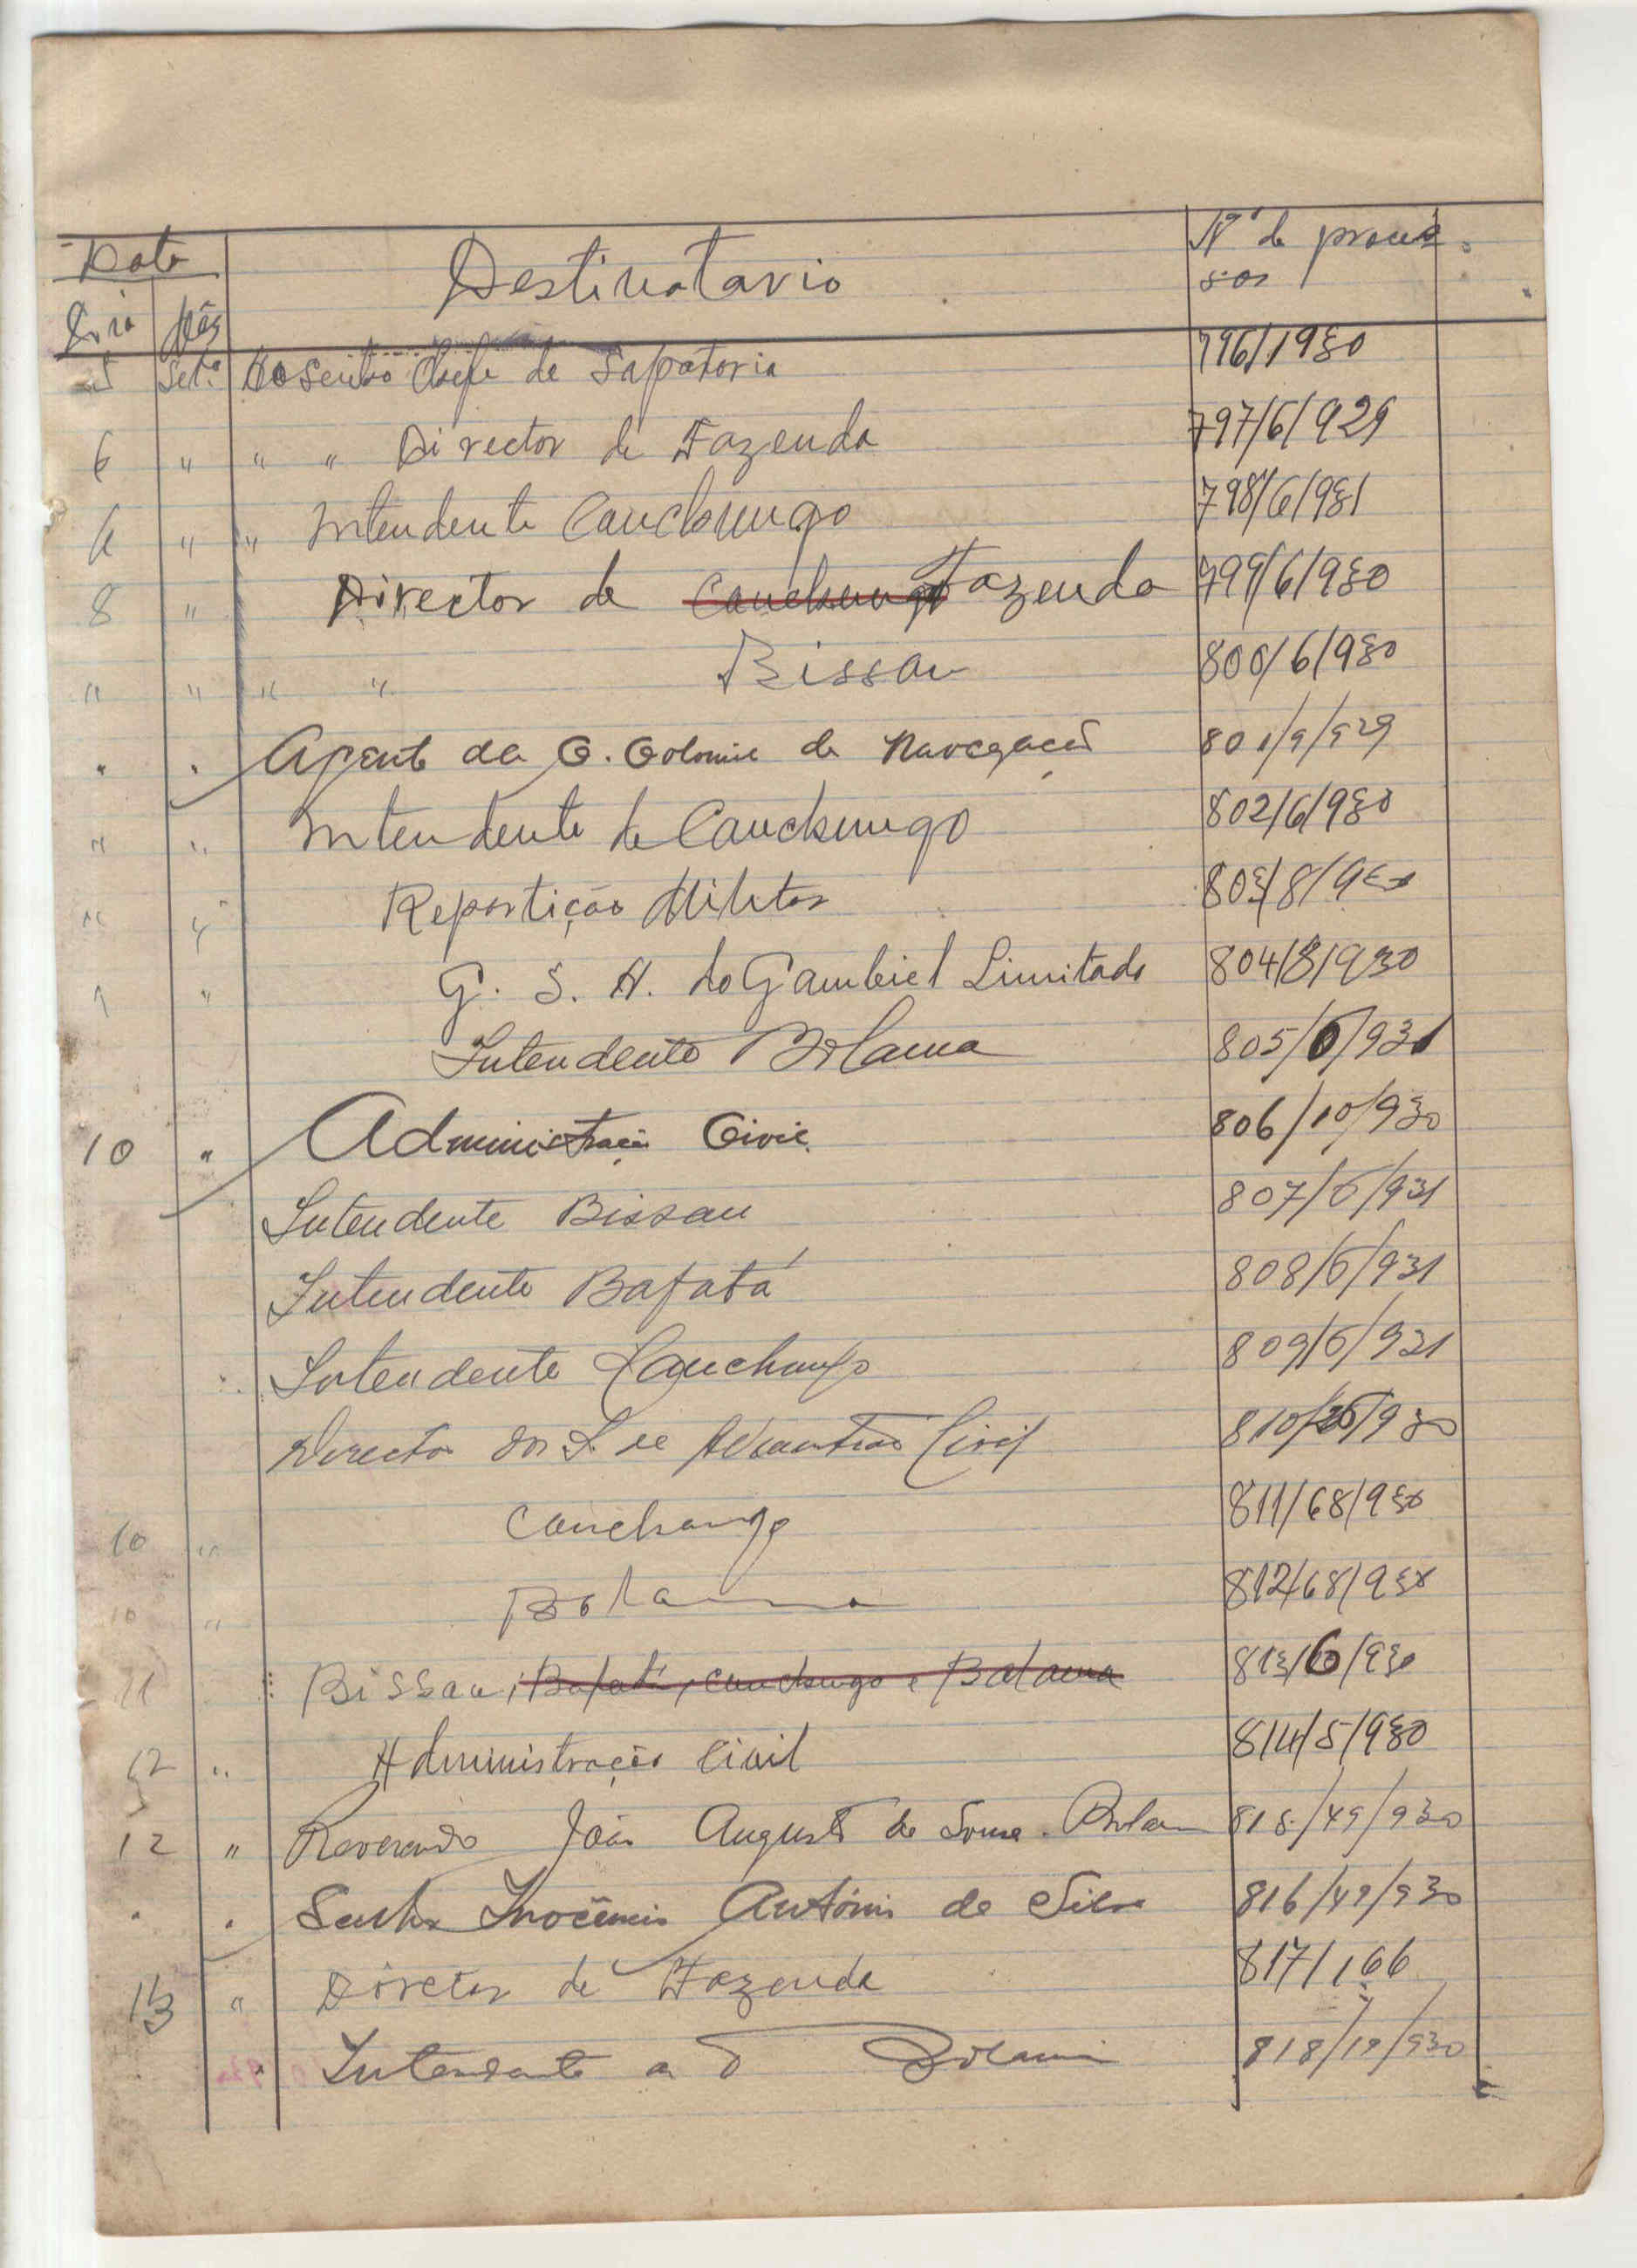 Data Destinatario Nº de proces-
Dia Mês sos
5 Setº Ao Senhor Chefe de Sapatoria 796/1930
6 " " " Director de Fazenda 797/6/929
6 " " Intendente Canchungo 798/6/931
8 " Director de Canchungo Fazenda 799/6/930
" " " " Bissau 800/6/930
" " Agente da C. Colonial de Navegação 801/9/929
" " Intendente de Canchungo 802/6/930
" " Repartição Militar 803/8/930
9 " G. S. A. do Gambiel Limitada 804/8/930
Intendente Bolama 805/6/931
10 " Administração Civil 806/10/930
Intendente Bissau 807/6/931
Intendente Bafatá 808/6/931
Intendente Canchungo 809/6/931
Director dos S. de Civil 810/26/930
10 " Canchungo 811/68/930
10 " Bolama 812/68/930
11 " Bissau, Bafatá, Canchungo e Bolama 813/6/930
12 " Administração Civil 814/5/930
12 " Reverendo João Augusto de Sousa. Bolama 815/49/930
" " Senhor Inocêncio António da Silva 816/49/930
13 " Director de Fazenda 817/166
Intendente Bolama 818/19/930